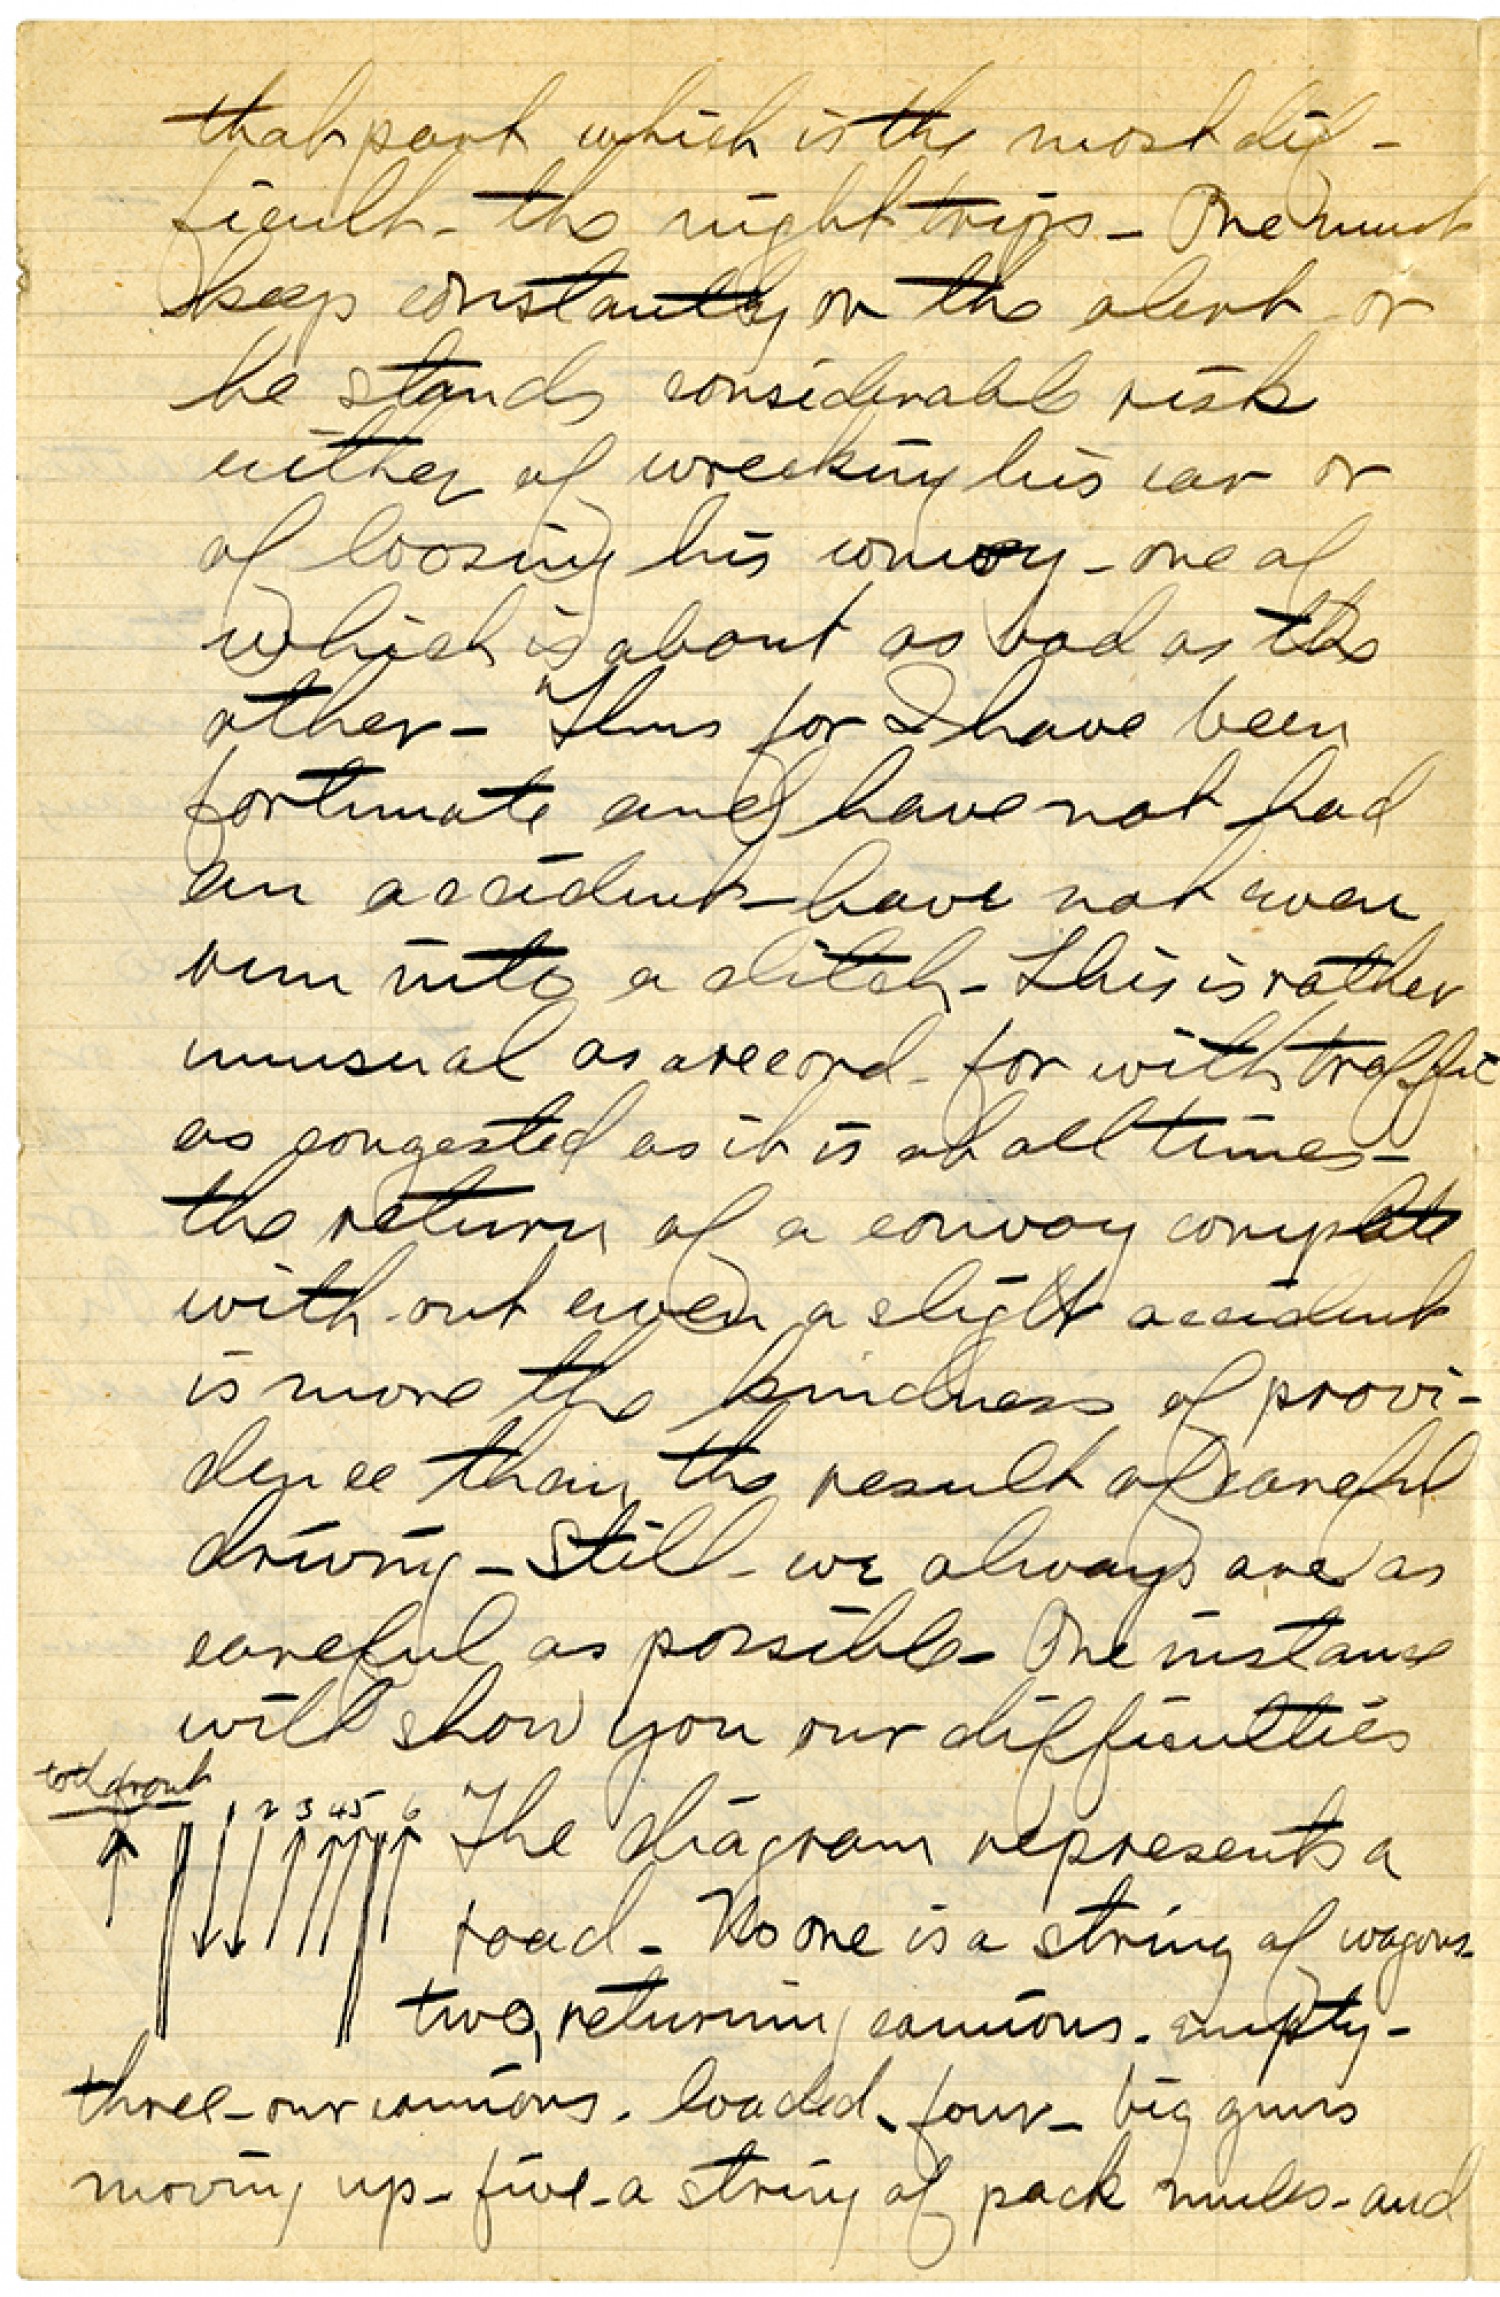 that part which is the most dif-
ficult - the night trips - One must
keep constantly on the alert or
he stands considerable risk
either of wrecking his car or
of loosing his convoy - one of
which is about as bad as the
other - Thus far I have been
fortunate and have not had
an accident - have not even
run into a ditch - This is rather
unusual as a record - for with traffic
as congested as it is at all times -
the return of a convoy complete
with-out even a slight accident
is more the kindness of provi-
dence than the result of careful
driving - Still - we always are as
careful as possible - One instance
will show you our difficulties
to the front
1 2 3 4 5 6
The diagram represents a
road - No one is a string of wagons -
two, returning camions - empty -
three - our camions - loaded - four - big guns
moving up - five - a string of pack mules - and